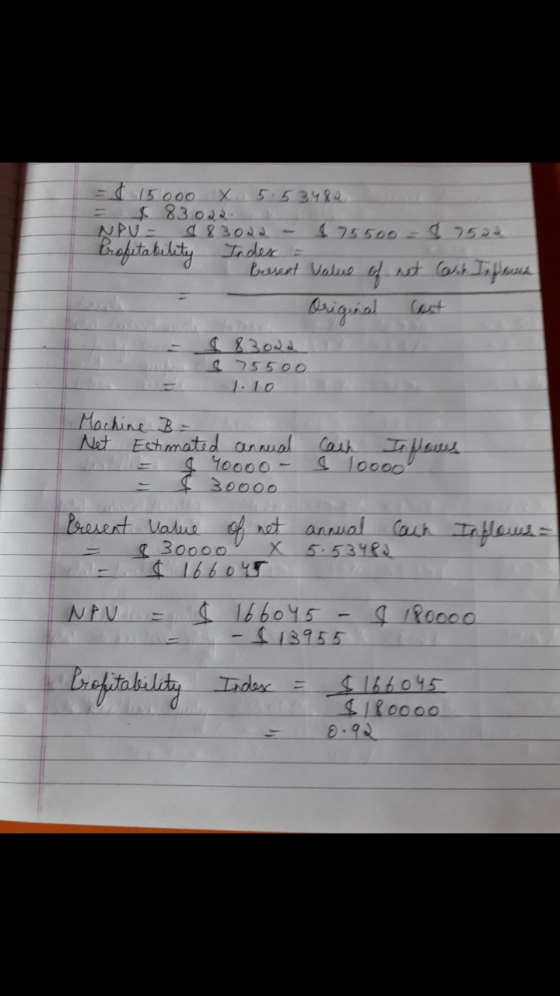 = $ 15000 X 5.53482
= $ 83022.
NPV = $ 83022 - $ 75500 = $ 7522
Profitability Index =
= Present Value of net Cash Inflows
Original Cost
= $ 83022
$ 75500
= 1.10
Machine B =
Net Estimated annual Cash Inflows
= $ 40000 - $ 10000
= $ 30000
Present Value of net annual Cash Inflows =
= $ 30000 X 5.53482
= $ 166045
NPV = $ 166045 - $ 180000
= - $ 13955
Profitability Index = $ 166045
$ 180000
= 0.92